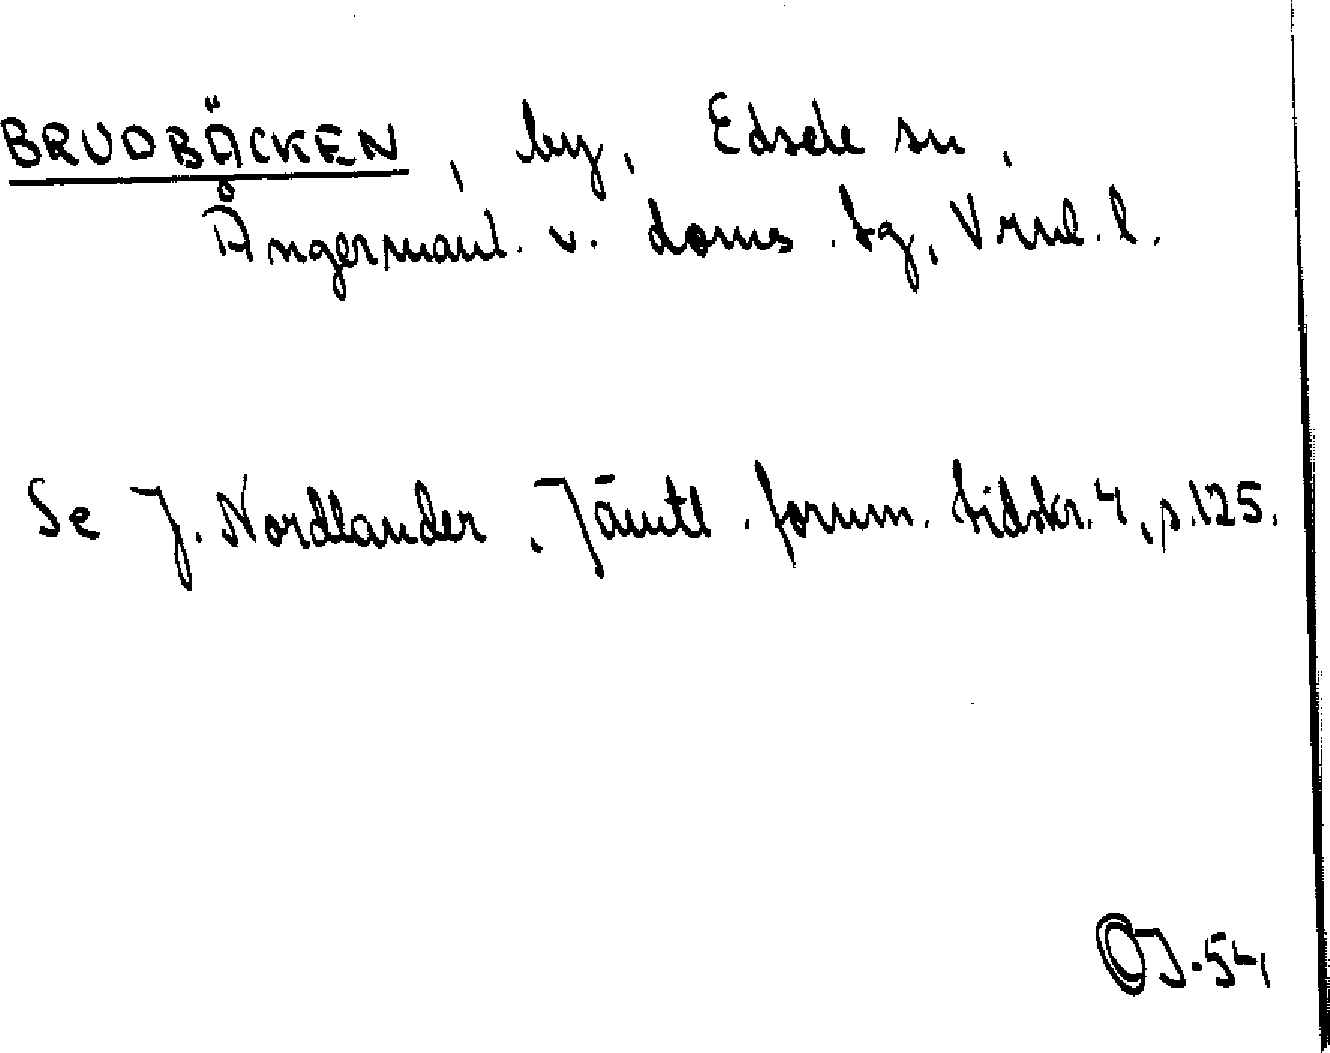 BRUDBÄCKEN, by, Edsele sn,
Ångermanl. v. doms. tg, Vrnl. l.
Se J. Nordlander, Jämtl. fornm. tidskr. 4, p. 125.
OJ. 54